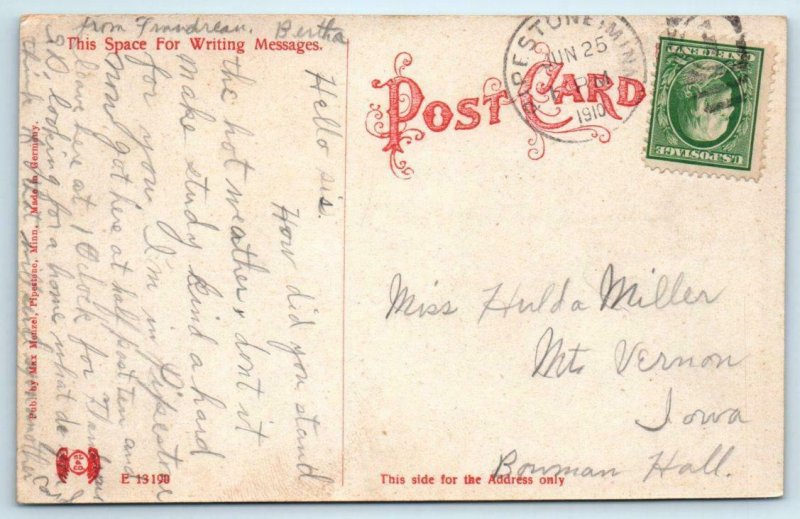 from Bertha
This Space For Writing Messages.
Hello sis.
How did you stand
the hot weather, dont it
make study kind a hard
for you. I'm in Pipestone
now, got here at half past ten and
leave here at 1 Oclock for
S.D. looking for a home what do you
think
Pub. by Max Menzel, Pipestone, Minn. Made in Germany.
E 13190
POST CARD
PIPESTONE, MINN.
JUN 25
PM
1910
U.S. POSTAGE
Miss Hulda Miller
Mt. Vernon
Iowa
Bowman Hall.
This side for the Address only